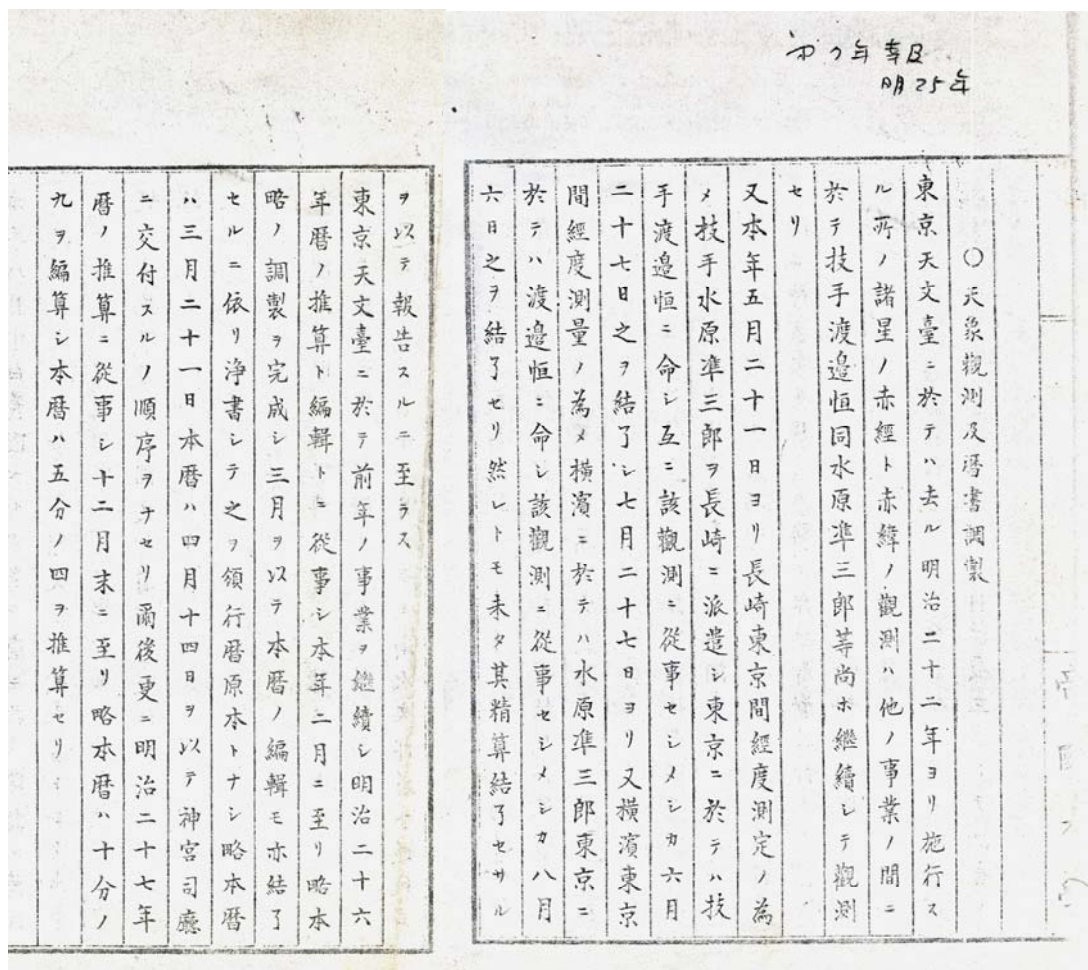 年報
明25年
○天象觀測及曆書調製
東京天文臺ニ於テハ去ル明治二十二年ヨリ施行ス
ル所ノ諸星ノ赤經ト赤緯ノ觀測ハ他ノ事業ノ間ニ
於テ技手渡邉恒同水原準三郎等尚ホ繼續シテ觀測
セリ
又本年五月二十一日ヨリ長崎東京間經度測定ノ為
メ技手水原準三郎ヲ長崎ニ派遣シ東京ニ於テハ技
手渡邉恒ニ命シ互ニ該觀測ニ從事セシメシカ六月
二十七日之ヲ結了シ七月二十七日ヨリ又横濱東京
間經度測量ノ為メ横濱ニ於テハ水原準三郎東京ニ
於テハ渡邉恒ニ命シ該觀測ニ從事セシメシカ八月
六日之ヲ結了セリ然レトモ未タ其精算結了セサル
ヲ以テ報告スルニ至ラス
東京天文臺ニ於テ前年ノ事業ヲ繼續シ明治二十六
年暦ノ推算ト編輯トニ從事シ本年二月ニ至リ略本
略ノ調製ヲ完成シ三月ヲ以テ本暦ノ編輯モ亦結了
セルニ依リ浄書シテ之ヲ頒行暦原本トナシ略本暦
ハ三月二十一日本暦ハ四月十四日ヲ以テ神宮司廳
ニ交付スルノ順序ヲナセリ爾後更ニ明治二十七年
暦ノ推算ニ從事シ十二月末ニ至リ略本暦ハ十分ノ
九ヲ編算シ本暦ハ五分ノ四ヲ推算セリ